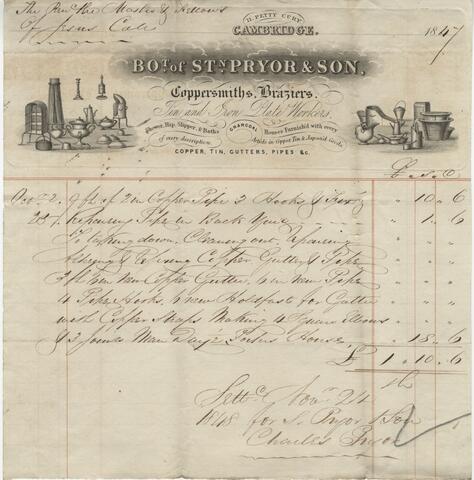 11. PETTY CURY
CAMBRIDGE.
The Revd. the Master & Fellows
of Jesus Coll
1847
BOT. OF STN. PRYOR & SON,
Coppersmiths, Braziers.
Tin and Iron Plate Workers.
Shower, Hip, Slipper, & Baths
of every description
CHARCOAL
Houses Furnish'd with every
Article in Copper Tin & Japan'd Goods
COPPER, TIN, GUTTERS, PIPES &c.
£ s. D
Oct 2. 9 ft of 2 in Copper Pipe 2 Hooks & " 10 " 6
Repairing Pipe in Back Yard " 1 " 6
To taking down, Cleaning out, Repairing
& Copper Gutter & Pipe
3 ft New Copper Gutter, New Pipe
4 Pipe Hooks, 6 new Holdfasts for Gutter
with Copper Straps Making 4 Square Elbows
& 2 joints Man Days Porters House " 18 " 6
£ 1 " 10 " 6
Settd. Novr. 24
1848 for S. Pryor & Son
Charles Pryor